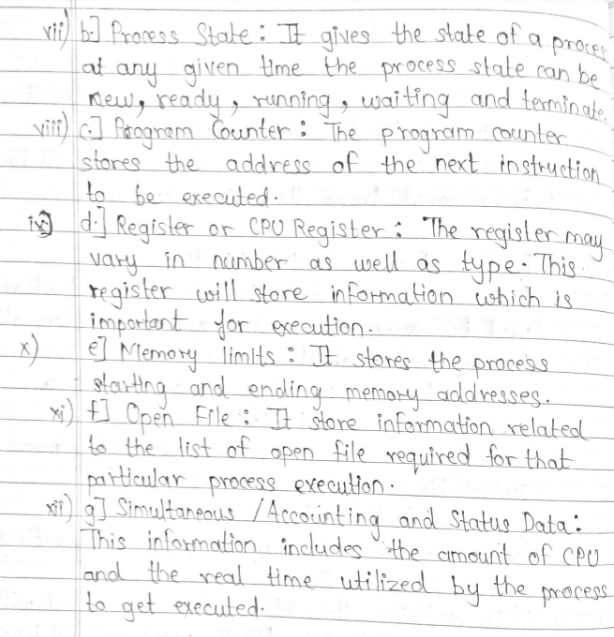 vii) b.] Process State : It gives the state of a proces
at any given time the process state can be
new, ready, running, waiting and terminate.
viii) c.] Program Counter : The program counter
stores the address of the next instruction
to be executed.
d.] Register or CPU Register : The register may
vary in number as well as type. This
register will store information which is
important for execution.
x) e] Memory limits : It stores the process
starting and ending memory addresses.
xi) f] Open File : It store information related
to the list of open file required for that
particular process execution.
xii) g] Simultaneous / Accounting and Status Data :
This information includes the amount of CPU
and the real time utilized by the process
to get executed.